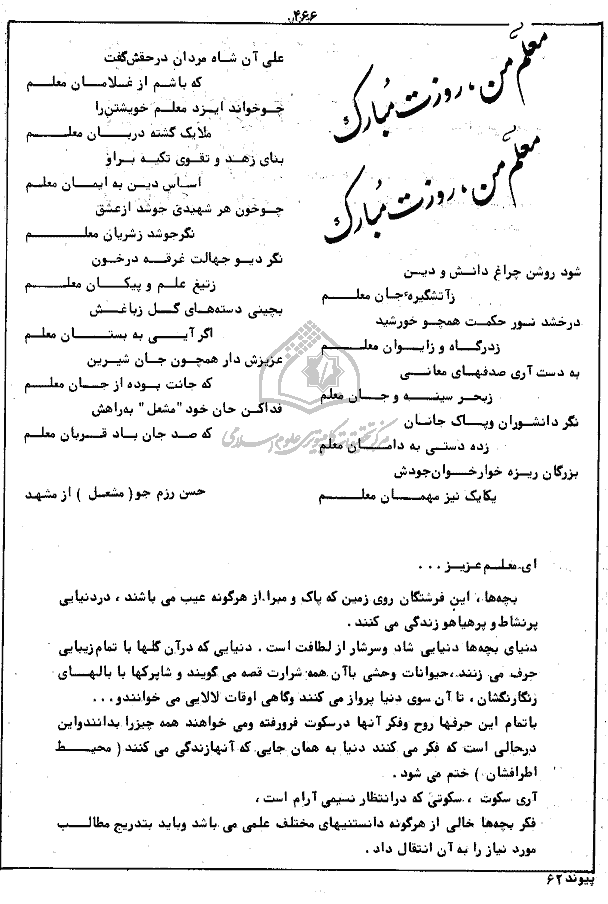 ۴۶۶
معلم من، روزت مُبارک
معلم من، روزت مُبارک
شود روشن چراغ دانش و دین
زآتشگیرهٔ جان معلم
درخشد نور حکمت همچو خورشید
زدرگاه و زایوان معلم
به دست آری صدفهای معانی
زبحر سینه و جان معلم
نگر دانشوران وپاک جانان
زده دستی به دامان معلم
بزرگان ریزه خوارخوان‌جودش
یکایک نیز مهمان معلم
علی آن شاه مردان درحقش‌گفت
که باشم از غلامان معلم
چوخواند ایزد معلم خویشتن‌را
ملایک گشته دربان معلم
بنای زهد و تقوی تکیه براو
اساس دین به ایمان معلم
چوخون هر شهیدی جوشد ازعشق
نگرجوشد زشریان معلم
نگر دیو جهالت غرقه درخون
زتیغ علم و پیکان معلم
بچینی دسته‌های گل زباغش
اگرآیی به بستان معلم
عزیزش دار همچون جان شیرین
که جانت بوده از جان معلم
فداکن جان خود "مشعل" به‌راهش
که صد جان باد قربان معلم
حسن رزم جو (مشعل) از مشهد
مرکز تحقیقات کامپیوتری علوم اسلامی
ای معلم عزیز . . .
بچه‌ها، این فرشتگان روی زمین که پاک و مبرا از هرگونه عیب می باشند ، دردنیایی
پرنشاط و پرهیاهو زندگی می کنند .
دنیای بچه‌ها دنیایی شاد وسرشار از لطافت است . دنیایی که درآن گلها با تمام‌زیبایی
حرف می زنند ،حیوانات وحشی باآن همه شرارت قصه می گویند و شاپرکها با بالهای
رنگارنگشان ، تا آن سوی دنیا پرواز می کنند وگاهی اوقات لالایی می خوانندو . . .
باتمام این حرفها روح وفکر آنها درسکوت فرورفته ومی خواهند همه چیزرا بدانندواین
درحالی است که فکر می کنند دنیا به همان جایی که آنهازندگی می کنند ( محیط
اطرافشان ) ختم می شود .
آری سکوت ، سکوتی که درانتظار نسیمی آرام است ،
فکر بچه‌ها خالی از هرگونه دانستنیهای مختلف علمی می باشد وباید بتدریج مطالب
مورد نیاز را به آن انتقال داد .
پیوند ۶۲